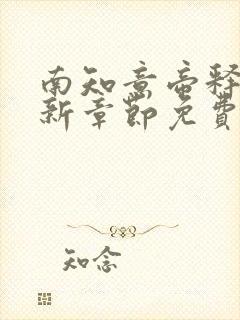 南知意帝释
新章节免费
知念